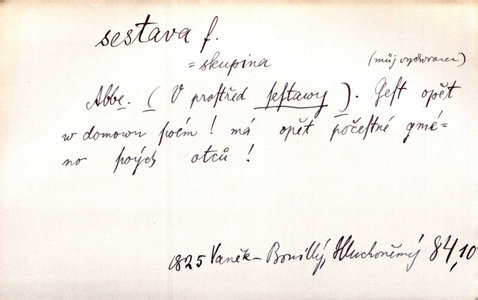 sestava f.
= skupina (můj vychovanec)
Abbe. (V prostřed sestawy). Gest opět
w domowu swém! má opět počestné gmé-
no swých otců!
1825 Vaněk-Bouilly, Hluchoněmý 84,10